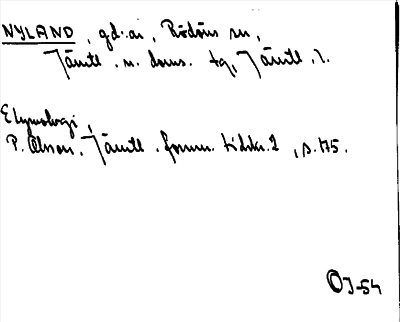 NYLAND, gd:ar, Rödöns sn,
Jämtl. n. doms. tg, Jämtl. l.
Etymologi,
P. Olsson, Jämtl. fornm. tidskr. 2, s. 175.
OJ-54